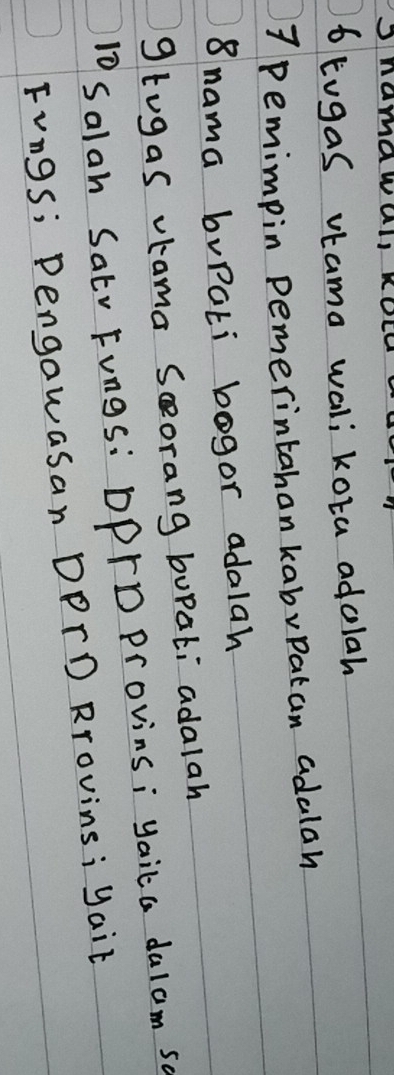 6 tugas utama wali kota adalah
7 Pemimpin Pemerintahan kabupatan adalah
8 nama buPati bogor adalah
9 tugas utama Seorang buPati adalah
10 Salah Satu Fungsi DPrD Provinsi yaita dalam
Fungsi Pengawasan DPrD Rrovinsi yait